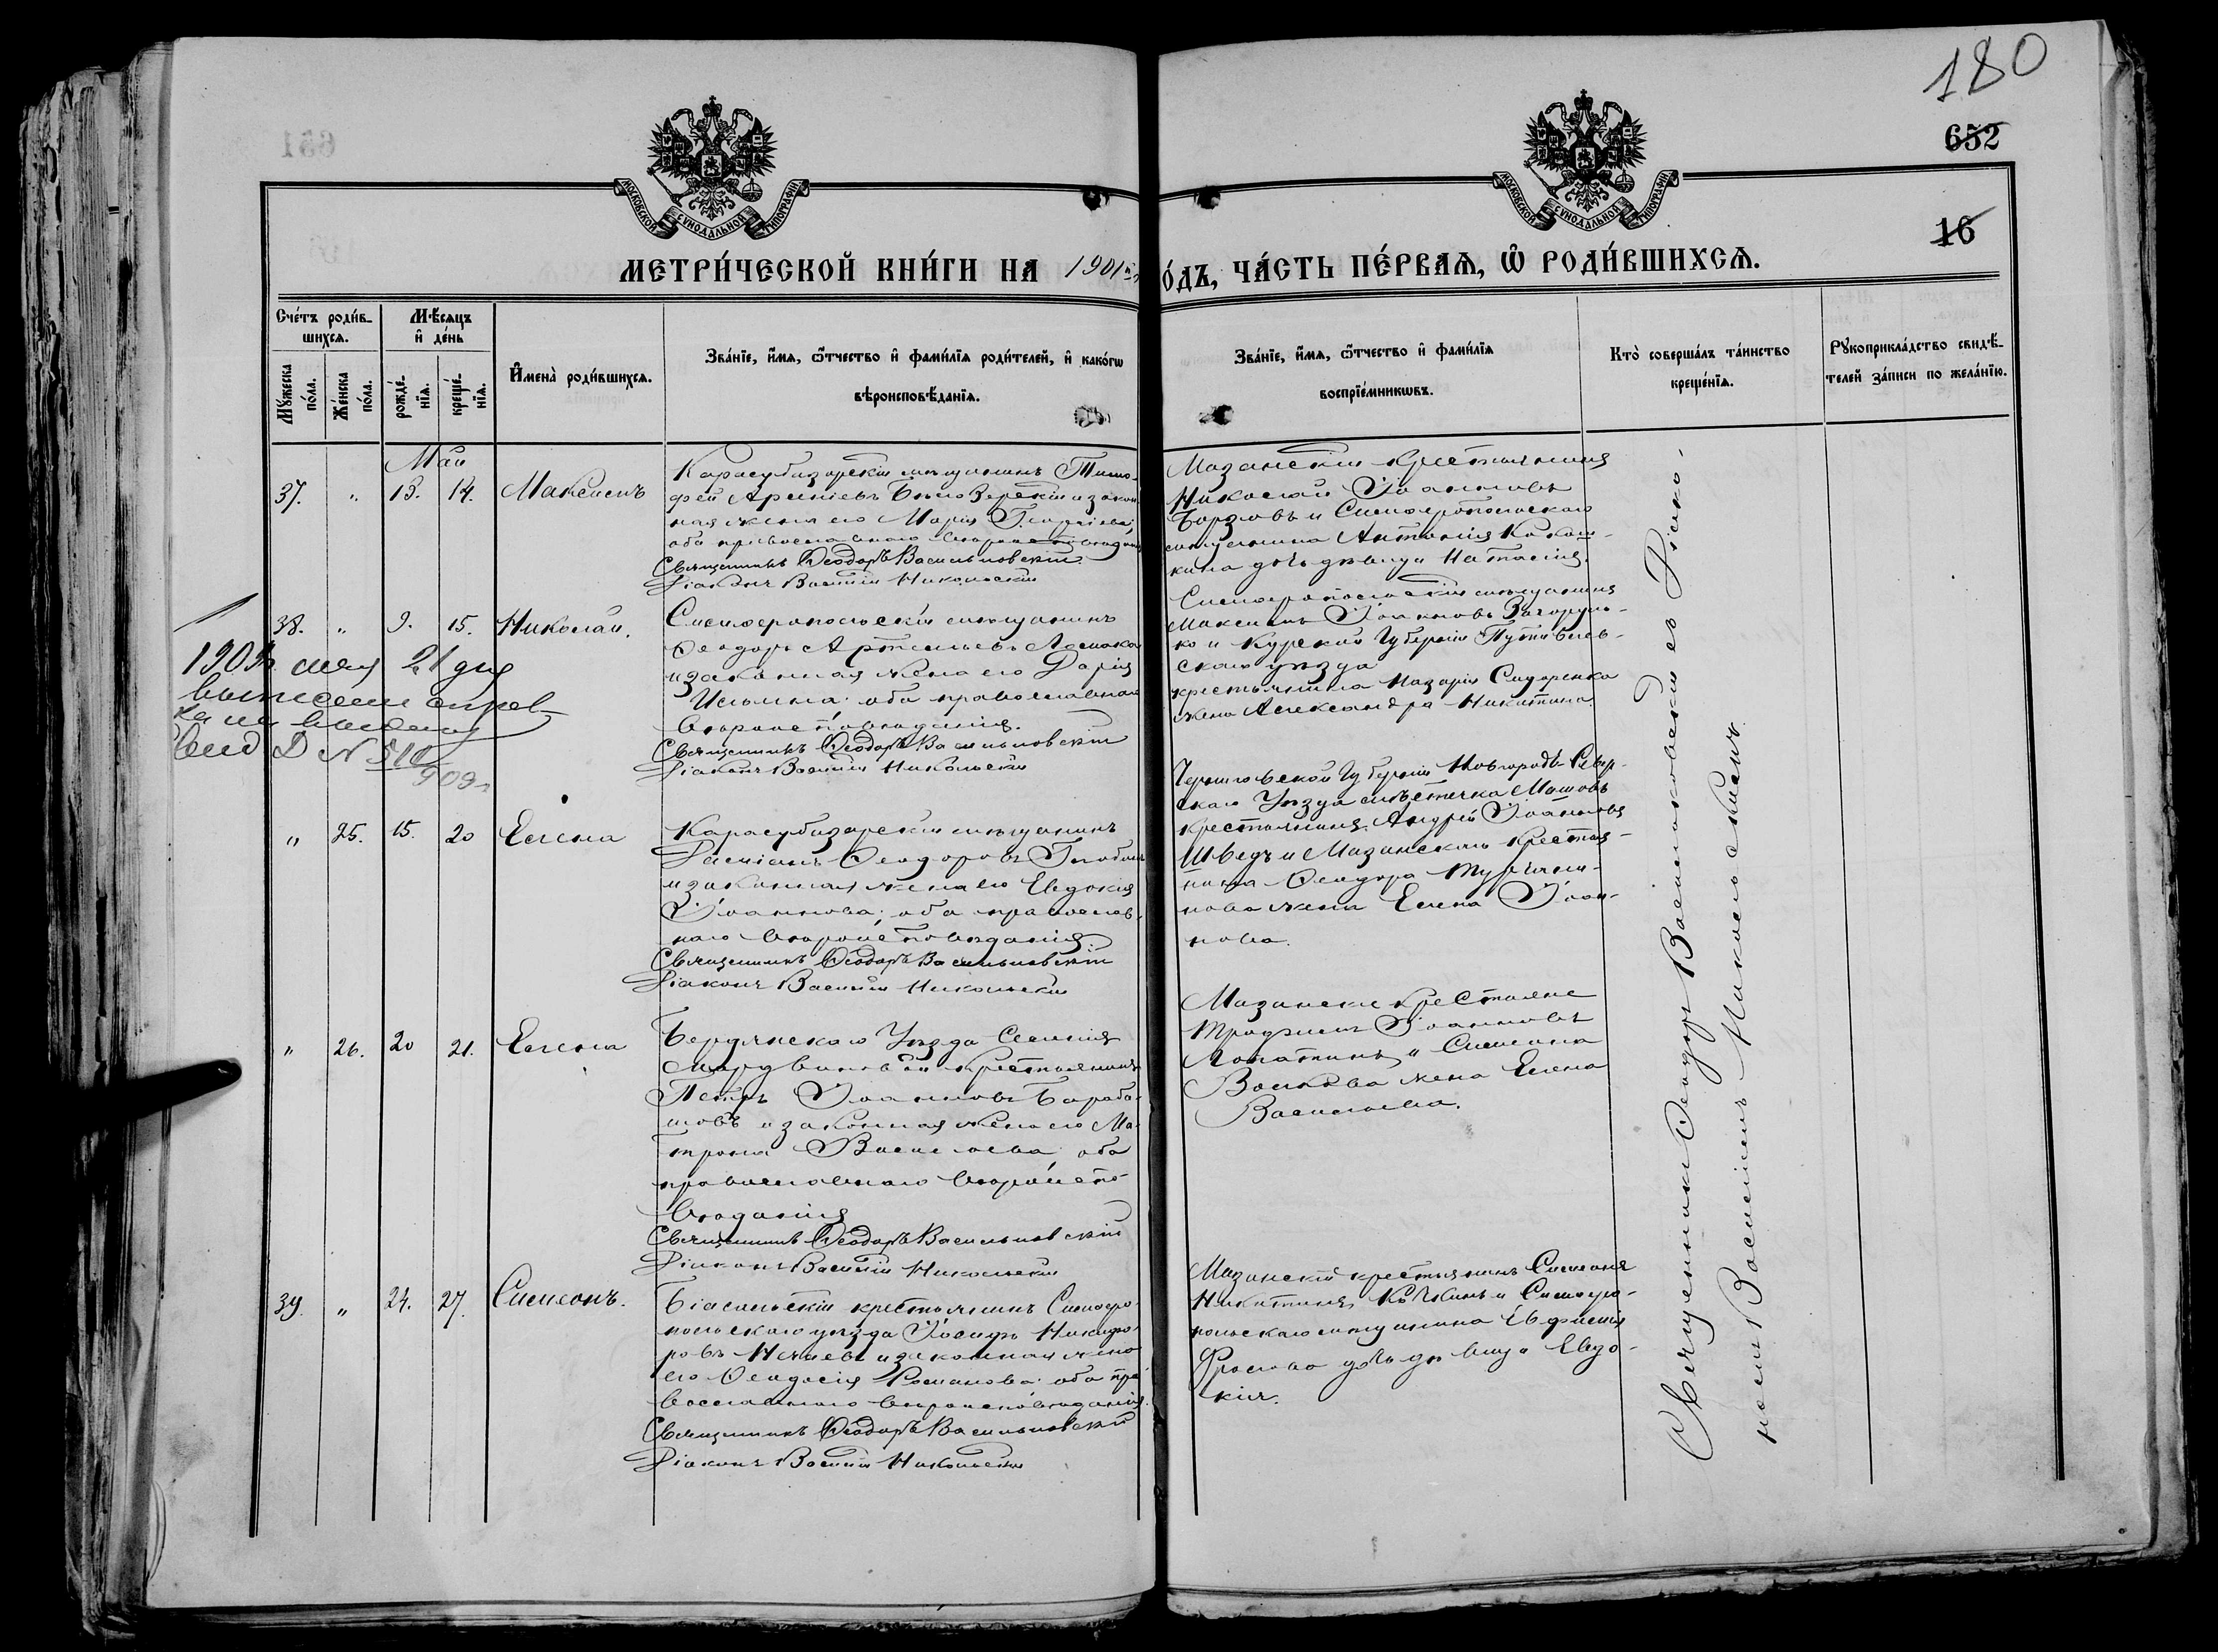 180
652
16
МОСКОВСКОЙ СѴНОДАЛЬНОЙ ТИПОГРАФІИ
МОСКОВСКОЙ СѴНОДАЛЬНОЙ ТИПОГРАФІИ
МЕТРИ́ЧЕСКОЙ КНИ́ГИ НА 1901й
О́ДЪ, ЧА́СТЬ ПЕ́РВАѦ, Ѡ҆ РОДИ́ВШИХСѦ.
Сче́тъ роди́в-
шихсѧ.
Мꙋ́жеска
по́ла.
Же́нска
по́ла.
Мѣ́сѧцъ
и҆ де́нь
рожде́-
нїѧ.
креще́-
нїѧ.
И҆мена̀ роди́вшихсѧ.
Зва́нїе, и҆́мѧ, ѻ҆́тчество и҆ фами́лїѧ роди́телей, и҆ како́гѡ
вѣроисповѣ́данїѧ.
Зва́нїе, и҆́мѧ, ѻ҆́тчество и҆ фами́лїѧ
воспрїе́мникѡвъ.
Кто̀ соверша́лъ та́инство
креще́нїѧ.
Рꙋкоприкла́дство свидѣ́-
телей за́писи по жела́нїю.
Май
37. " 13. 14. Максимъ
Карасубазарскій мѣщанинъ Тимо-
фей Арсеніевъ Бѣлозерскій и закон
ная жена его Марія Георгіева,
оба православнаго вѣроисповѣданія
Священникъ Ѳеодоръ Васильковскій
Діаконъ Василій Никольскій
Мазанскій крестьянинъ
Николай Іоанновъ
Борзовъ и Симферопольскаго
мѣщанина Антонія Кокош-
кина дочь дѣвица Наталія.
38. " 9. 15. Николай.
Симферопольскій мѣщанинъ
Ѳеодоръ Артемьевъ
и законная жена его Дарія
Ильина: оба православнаго
вѣроисповѣданія.
Священникъ Ѳеодоръ Васильковскій
Діаконъ Василій Никольскій
Симферопольскій мѣщанинъ
Максимъ Іоанновъ Загоруль-
ко и Курской Губерніи Путивльв-
скаго уѣзда
крестьянина Назарія Сидоренка
жена Александра Никитина
1909 мая 21 дня
№ 510
909
" 25. 15. 20 Елена
Карасубазарскій мѣщанинъ
Даміанъ Ѳеодоровъ
и законная жена его Евдокія
Іоаннова: оба православ-
наго вѣроисповѣданія
Священникъ Ѳеодоръ Васильковскій
Діаконъ Василій Никольскій
Черниговской Губерніи Новгородъ-Сѣвер-
скаго Уѣзда мѣстечка
крестьянинъ Андрей Іоанновъ
Шведъ и Мазанскаго крестья-
нина Ѳеодора
нова жена Елена Іоан-
нова.
" 26. 20 21. Елена
Бердянскаго Уѣзда Селенія
крестьянинъ
Петръ Іоанновъ Бараба-
шовъ и законная жена его Ма-
трона Васильева: оба
православнаго вѣроиспо-
вѣданія
Священникъ Ѳеодоръ Васильковскій
Діаконъ Василій Никольскій
Мазанскіе крестьяне
Трофимъ Іоанновъ
Лопатинъ и Симеона
Волкова жена Елена
Васильева.
39. " 24. 27. Симеонъ.
Біасальскій крестьянинъ Симферо-
польскаго уѣзда Іосифъ Никифо-
ровъ и законная жена
его Ѳеодосія Романова: оба пра-
вославнаго вѣроисповѣданія.
Священникъ Ѳеодоръ Васильковскій
Діаконъ Василій Никольскій
Мазанскій крестьянинъ Симеонъ
Никитинъ и Симферо-
польскаго мѣщанина Евфимія
Фролова дочь дѣвица Евдо-
кія.
Священникъ Ѳеодоръ Васильковскій съ Діако-
номъ Василіемъ Никольскимъ.